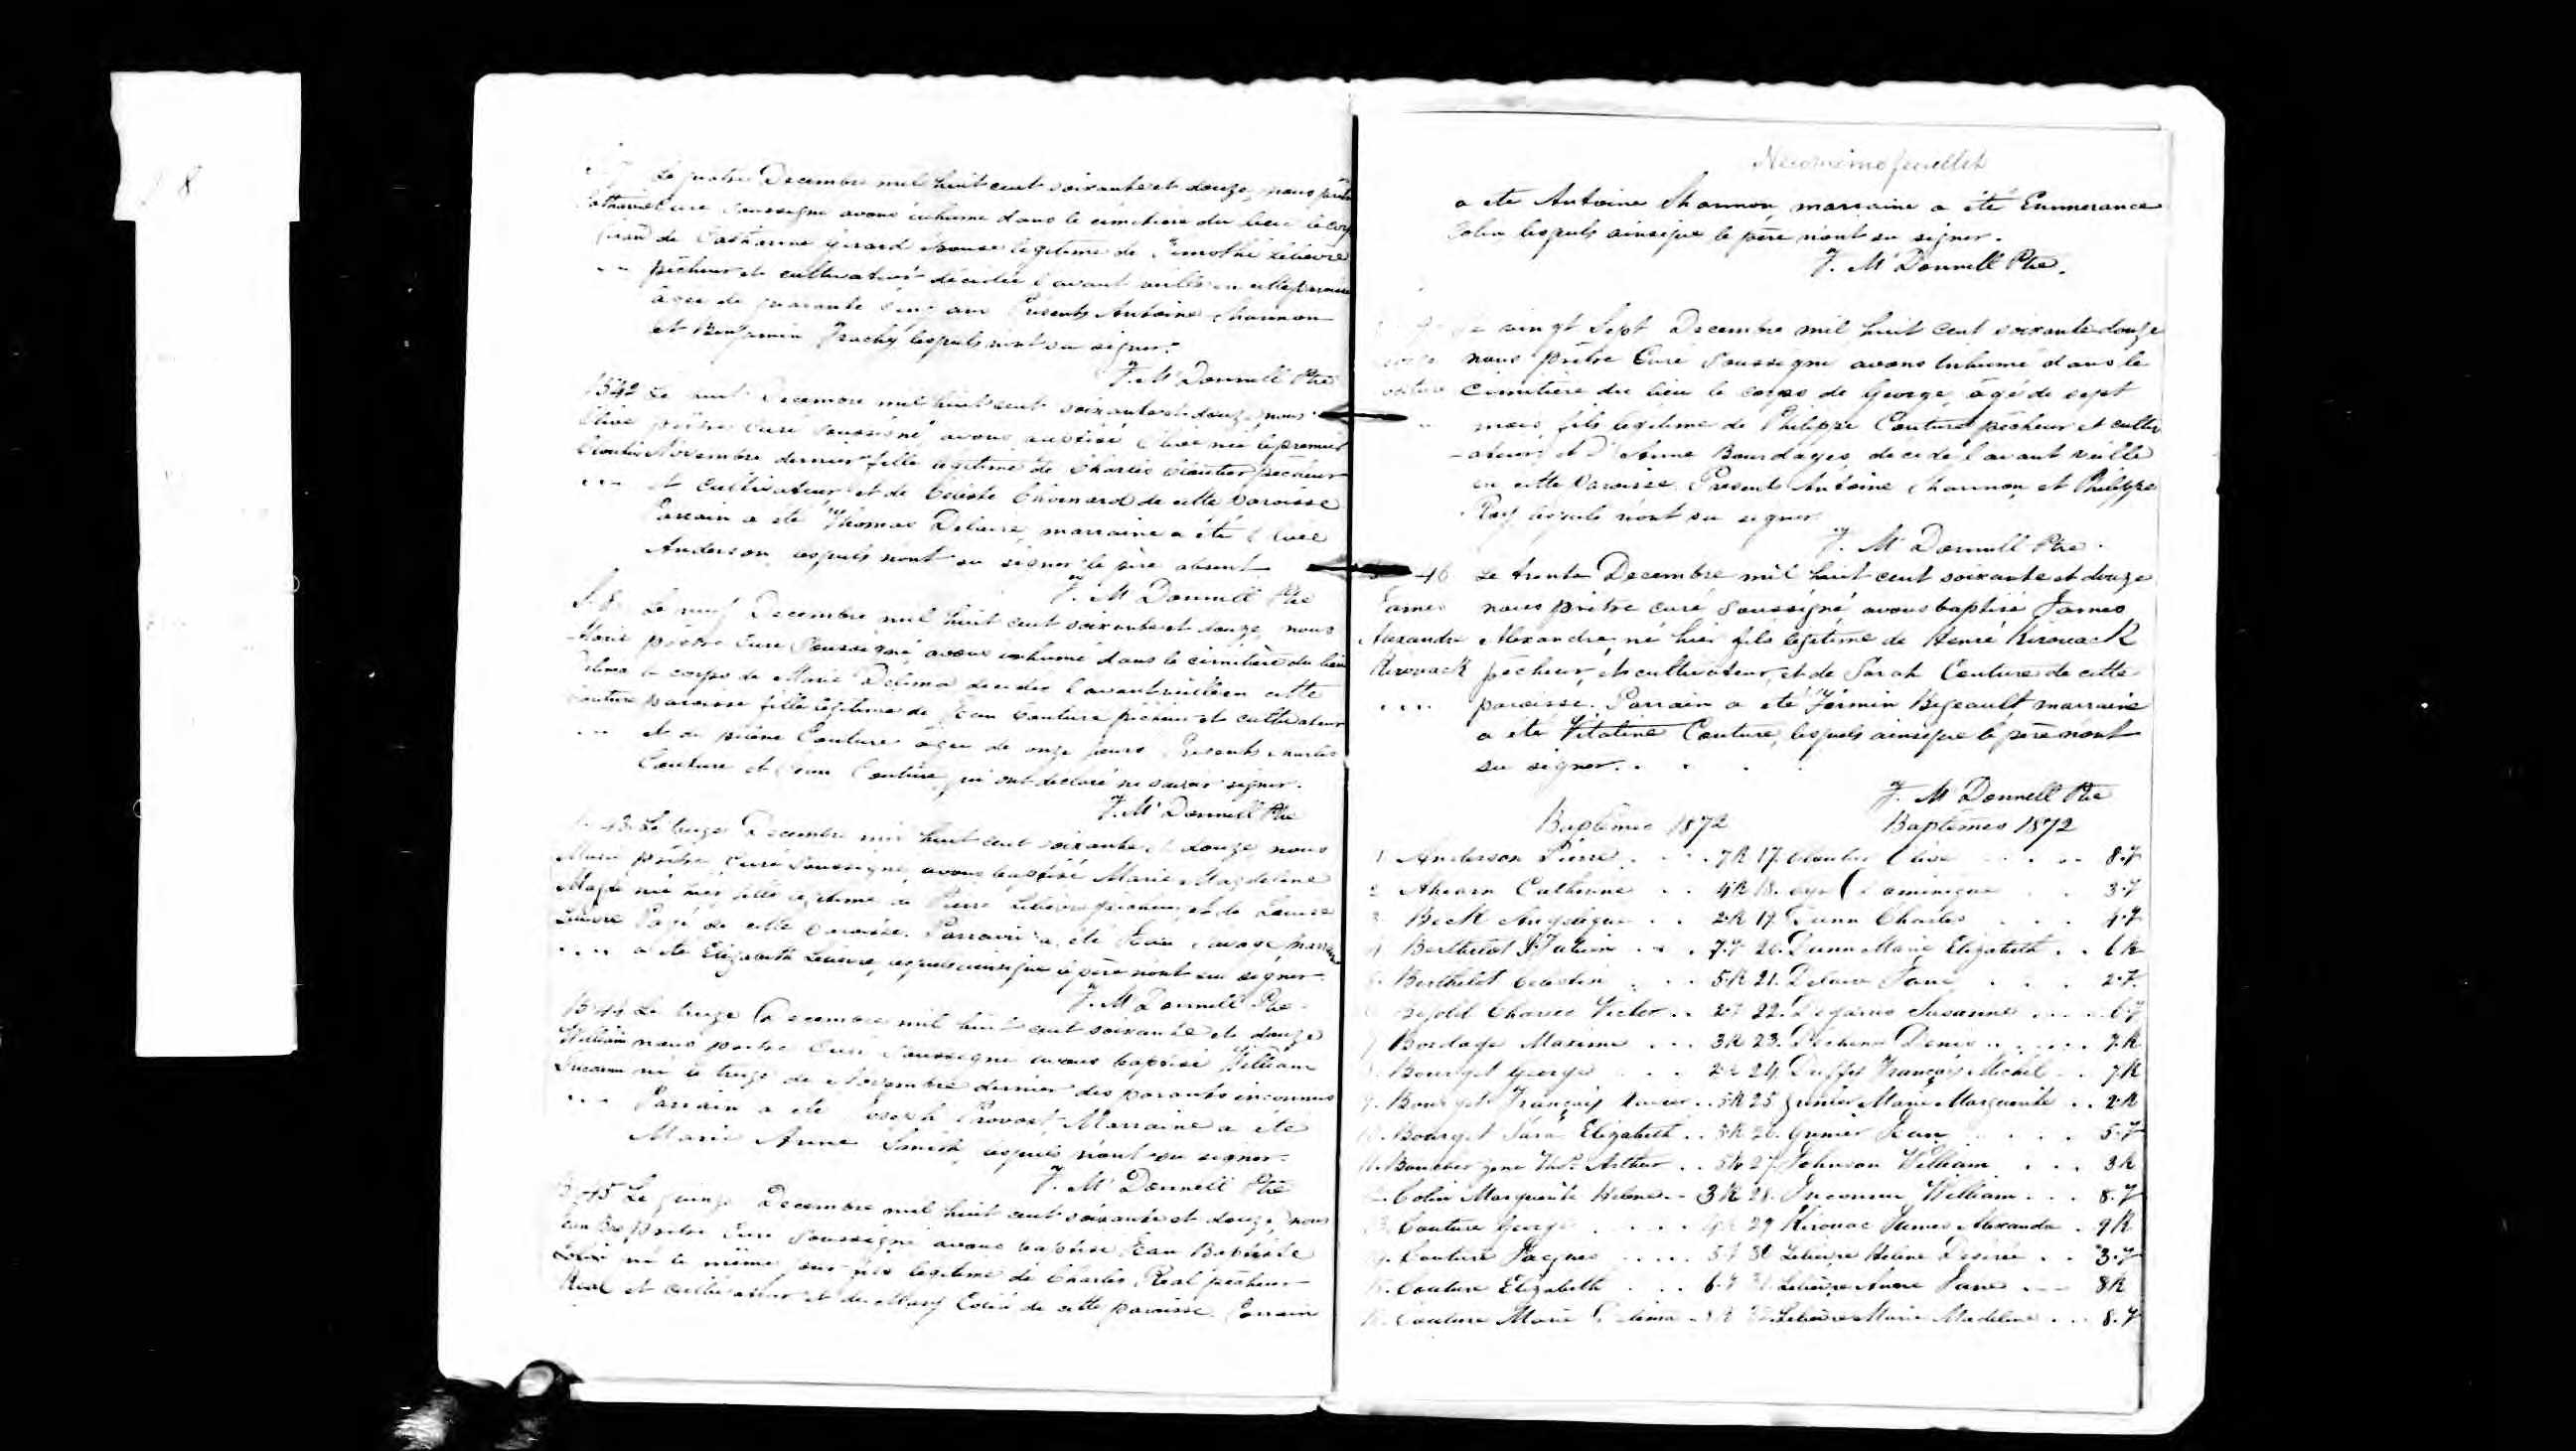 8
Le quatre Decembre mil huit cent soixante et douze, nous prêtre
Catharine Curé soussigné avons inhumé dans le cimitiere du lieu le corps
Girard de Catharine Girard Epouse légitime de Timothé Lelievre
pêcheur et cultivateur décédée l'avant veille en cette paroisse
âgée de quarante cinq ans Présents Antoine Shannon
et Benjamin Trachy lesquels n'ont su signer.
F. Mc Donnell Ptre
B 42 Le huit Decembre mil huit cent soixante et douze, nous
Elise prêtre Curé soussigné avons baptisé Elise née le premier
Cloutier Novembre dernier fille légitime de Charles Cloutier pêcheur
et cultivateur et de Celeste Chouinard de cette Paroisse
Parrain a été Thomas Delaire, marraine a été
Anderson lesquels n'ont su signer le père absent
F. Mc Donnell Ptre
S. 8 Le neuf Decembre mil huit cent soixante et douze, nous
Marie prêtre Curé Soussigné, avons inhumé dans le cimitière du lieu
Delima le corps de Marie Delima décédée l'avant veille en cette
Couture paroisse fille légitime de Jean Couture pêcheur et cultivateur
et de Couture âgée de onze jours Présents Charles
Couture et Jean Couture, qui ont declaré ne savoir signer.
F. Mc Donnell Ptre
43 Le treize Decembre mil huit cent soixante et douze nous
Marie prêtre Curé Soussigné, avons baptisé Marie Magdeleine
Magde née hier, fille légitime de Pierre Lelièvre pêcheur, et de Louise
Lelièvre Pagé de cette Paroisse. Parrain a été Jean Savage, marraine
a été Elizabeth Lelievre, lesquels ainsi que le père n'ont su signer.
F. Mc Donnell Ptre
B 44 Le treize Decembre mil huit cent soixante et douze
William nous prêtre Curé Soussigné avons baptisé William
Inconnu né le treize de Novembre dernier des parents inconnus
Parrain a été Joseph Provost, Marraine a été
Marie Anne Smith, lesquels n'ont su signer.
F. Mc Donnell Ptre
B 45 Le quinze Decembre mil huit cent soixante et douze, nous
Jean Bte prêtre Curé Soussigné avons baptisé Jean Baptiste
né le même jour fils légitime de Charles Réal pêcheur
Réal et cultivateur et de Mary Colin de cette paroisse. Parrain
Neuvieme feuillet
a été Antoine Shannon, marraine a été Emmerance
Colin lesquels ainsi que le père n'ont su signer.
F. Mc Donnell Ptre.
vingt Sept Decembre mil huit cent soixante douze
nous prêtre Curé Soussigné avons inhumé dans le
Couture cimitière du lieu le corps de George, âgé de sept
mois, fils légitime de Philippe Couture pêcheur et culti
-vateur et d'Anne Bourdages décédé l'avant veille
en cette Paroisse. Presents Antoine Shannon et Philippe
Roy lesquels n'ont su signer
F. Mc Donnell Ptre.
46 Le trente Decembre mil huit cent soixante et douze
James nous prêtre curé soussigné avons baptisé James
Alexandre Alexandre, né hier fils légitime de Henré Kirouack
Kirouack pêcheur, et cultivateur, et de Sarah Couture de cette
paroisse. Parrain a été Firmin Bigeault marraine
a été Vitaline Couture, lesquels ainsi que le père n'ont
su signer.
F. Mc Donnell Ptre
Baptêmes 1872 Baptêmes 1872
1 Anderson Pierre 7R 17. Cloutier Elise 8.F
2 Ahearn Catherine 4R 18. Dominique 3.F
3 Beck Angelique 2R 19 Dunn Charles 4.F
4 Berthelot 7.F 20. Dunn Marie Elizabeth 6R
5. Berthelot Celestin 5R 21. Delaire Jane 2.F.
Charles Victor 2F 22. Susanne 6F
7 Bordage Maxime 3R 23. Denis 7.R
8. Bourget George 2R 24. Duffy François Michel 7R
9. Bourget François Xavier 5R 25 Grenier Marie Marguerite 2R
10. Bourget Sara Elizabeth 5R 26. Grenier Jean 5.F
11. Boucher Arthur 5R 27 Johnson William 3R
12. Colin Marguerite Helene 3R 28. Inconnu William 8.F
13. Couture George 29 Kirouac James Alexandre 9R
14. Couture Jacques 5F 30 Lelièvre Helene Desirée 3.F
15. Couture Elizabeth 6.F 31. Lelièvre Anne Jane 8R
16. Couture Marie Delima 8R 32 Lelièvre Marie Madeleine 8.F